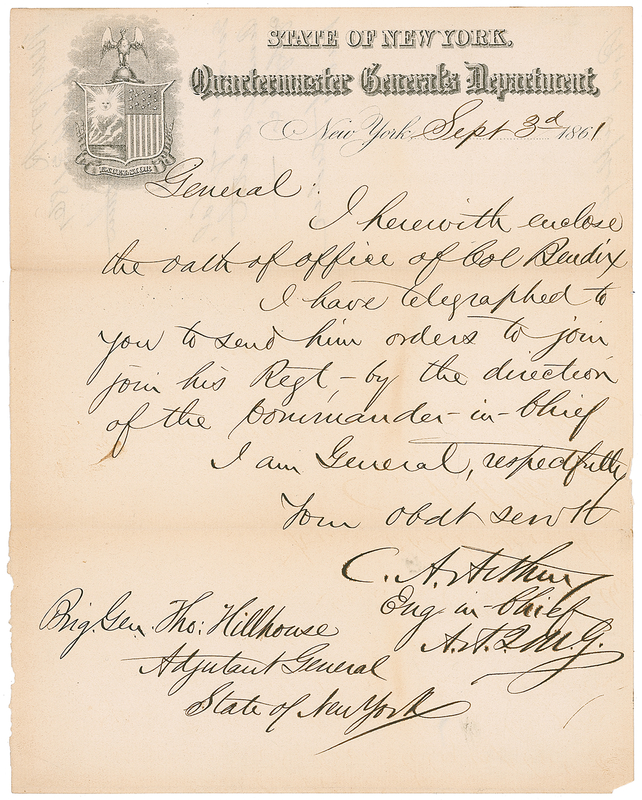 STATE OF NEW YORK,
Quartermaster General's Department,
New York, Sept 3d 1861
EXCELSIOR
General:
I herewith enclose
the oath of office of Col Bendix
I have telegraphed to
you to send him orders to join
join his Regt - by the direction
of the Commander-in-Chief
I am General, respectfully
Your obdt servt
C. A. Arthur
Eng in-Chief
A.A.Q.M.G.
Brig. Gen. Tho: Hillhouse
Adjutant General
State of New York